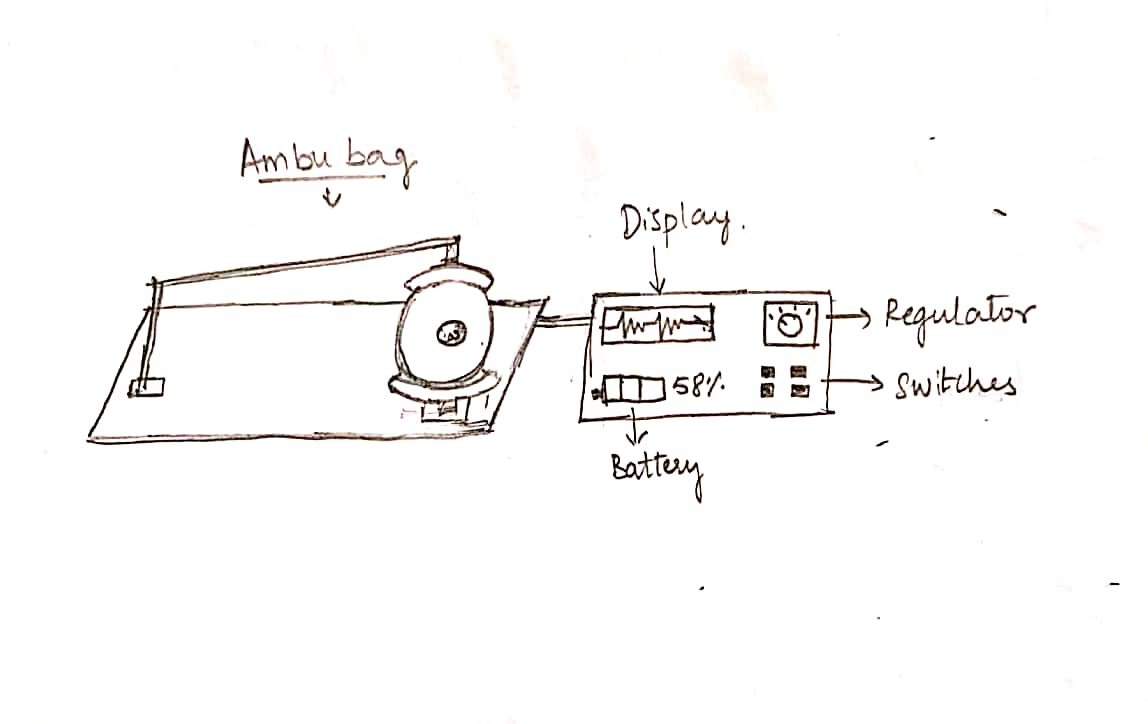 Ambu bag
Display.
Regulator
58%.
Switches
Battery